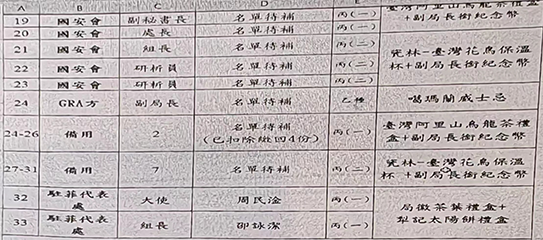 A B C D E
19 國安會 副秘書長 名單待補 丙(一) 臺灣阿里山烏龍茶禮盒
+副局長銜紀念幣
20 國安會 處長 名單待補 丙(一)
21 國安會 組長 名單待補 丙(二) 瓷林-臺灣花鳥保溫
杯+副局長銜紀念幣
22 國安會 研析員 名單待補 丙(二)
23 國安會 研析員 名單待補 丙(二)
24 GRA方 副局長 名單待補 乙種 噶瑪蘭威士忌
24-26 備用 2 名單待補
(已扣除繳回4份) 丙(一) 臺灣阿里山烏龍茶禮
盒+副局長銜紀念幣
27-31 備用 7 名單待補 丙(二) 瓷林-臺灣花鳥保溫
杯+副局長銜紀念幣
32 駐菲代表
處 大使 周民淦 丙(一) 局徽茶葉禮盒+
犁記太陽餅禮盒
33 駐菲代表
處 組長 邵詠潔 丙(一)